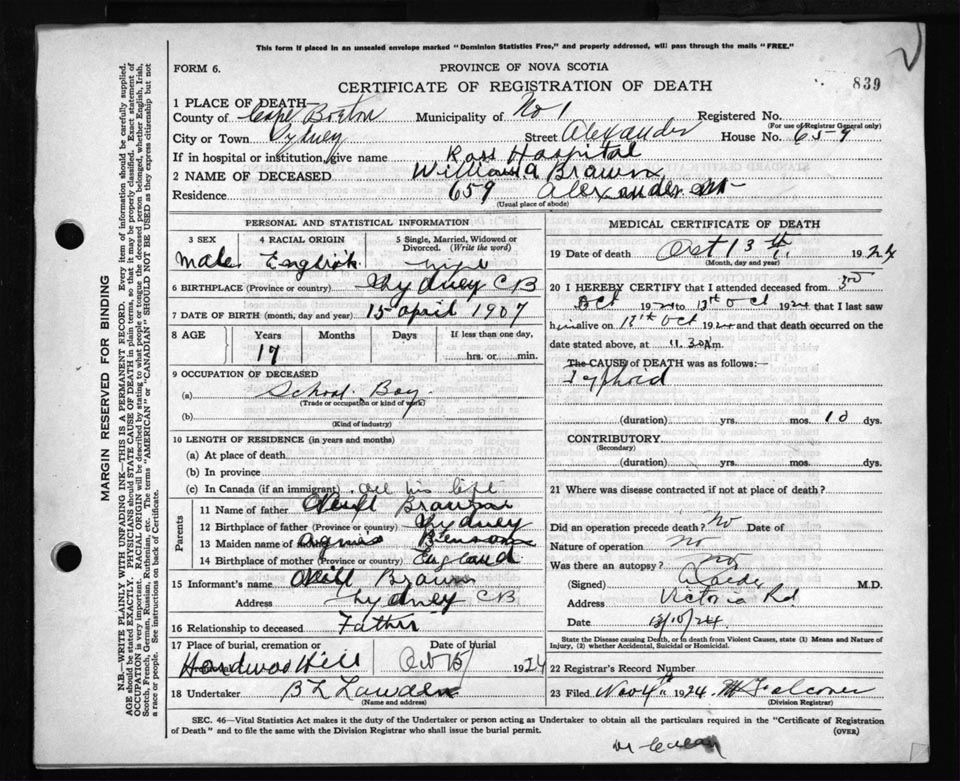 This form if placed in an unsealed envelope marked "Dominion Statistics Free," and properly addressed, will pass through the mails "FREE."
FORM 6.
PROVINCE OF NOVA SCOTIA
CERTIFICATE OF REGISTRATION OF DEATH
839
1 PLACE OF DEATH
County of Cape Breton Municipality of No 1 Registered No.
(For use of Registrar General only)
City or Town Sydney Street Alexander House No. 65-9
If in hospital or institution, give name Ross Hospital
2 NAME OF DECEASED William A Brown
Residence 659 Alexander St
(Usual place of abode)
PERSONAL AND STATISTICAL INFORMATION
3 SEX 4 RACIAL ORIGIN 5 Single, Married, Widowed or Divorced. (Write the word)
Male English
6 BIRTHPLACE (Province or country) Sydney CB
7 DATE OF BIRTH (month, day and year) 15 April 1907
8 AGE Years Months Days If less than one day,
17 hrs. or min.
9 OCCUPATION OF DECEASED
(a) School Boy
(Trade or occupation or kind of work)
(b)
(Kind of industry)
10 LENGTH OF RESIDENCE (in years and months)
(a) At place of death
(b) In province
(c) In Canada (if an immigrant) all his life
Parents
11 Name of father Brown
12 Birthplace of father (Province or country) Sydney
13 Maiden name of mother Agnes Benson
14 Birthplace of mother (Province or country) England
15 Informant's name Brown
Address Sydney CB
16 Relationship to deceased Father
17 Place of burial, cremation or Date of burial
Hardwood Hill Oct 15 1924
18 Undertaker
(Name and address)
MEDICAL CERTIFICATE OF DEATH
19 Date of death Oct 13th 1924
(Month, day and year)
20 I HEREBY CERTIFY that I attended deceased from 3rd
Oct 1924 to 13th Oct 1924 that I last saw
him alive on 13th Oct 1924 and that death occurred on
date stated above, at 11.30 m.
The CAUSE of DEATH was as follows:
Typhoid
(duration) yrs. mos. 10 dys.
CONTRIBUTORY
(Secondary)
(duration) yrs. mos. dys.
21 Where was disease contracted if not at place of death?
Did an operation precede death? No Date of
Nature of operation no
Was there an autopsy? no
(Signed) M.D.
Address Victoria Rd
Date 13/10/24
State the Disease causing Death, or in death from Violent Causes, state (1) Means and Nature of
Injury, (2) whether Accidental, Suicidal or Homicidal.
22 Registrar's Record Number
23 Filed Nov 4th 1924 Falconer
(Division Registrar)
SEC. 46—Vital Statistics Act makes it the duty of the Undertaker or person acting as Undertaker to obtain all the particulars required in the "Certificate of Registration
of Death" and to file the same with the Division Registrar who shall issue the burial permit.
(OVER)
MARGIN RESERVED FOR BINDING
N.B.—WRITE PLAINLY WITH UNFADING INK—THIS IS A PERMANENT RECORD. Every item of information should be carefully supplied.
AGE should be stated EXACTLY. PHYSICIANS should STATE CAUSE OF DEATH in plain terms, so that it may be properly classified. Exact statement of
OCCUPATION is very important. RACIAL ORIGIN will be described by stating to what people or tongue the deceased person belonged, whether English, Irish,
Scotch, French, German, Russian, Ruthenian, etc. The terms "AMERICAN" or "CANADIAN" SHOULD NOT BE USED as they express citizenship but not
a race or people. See instructions on back of Certificate.